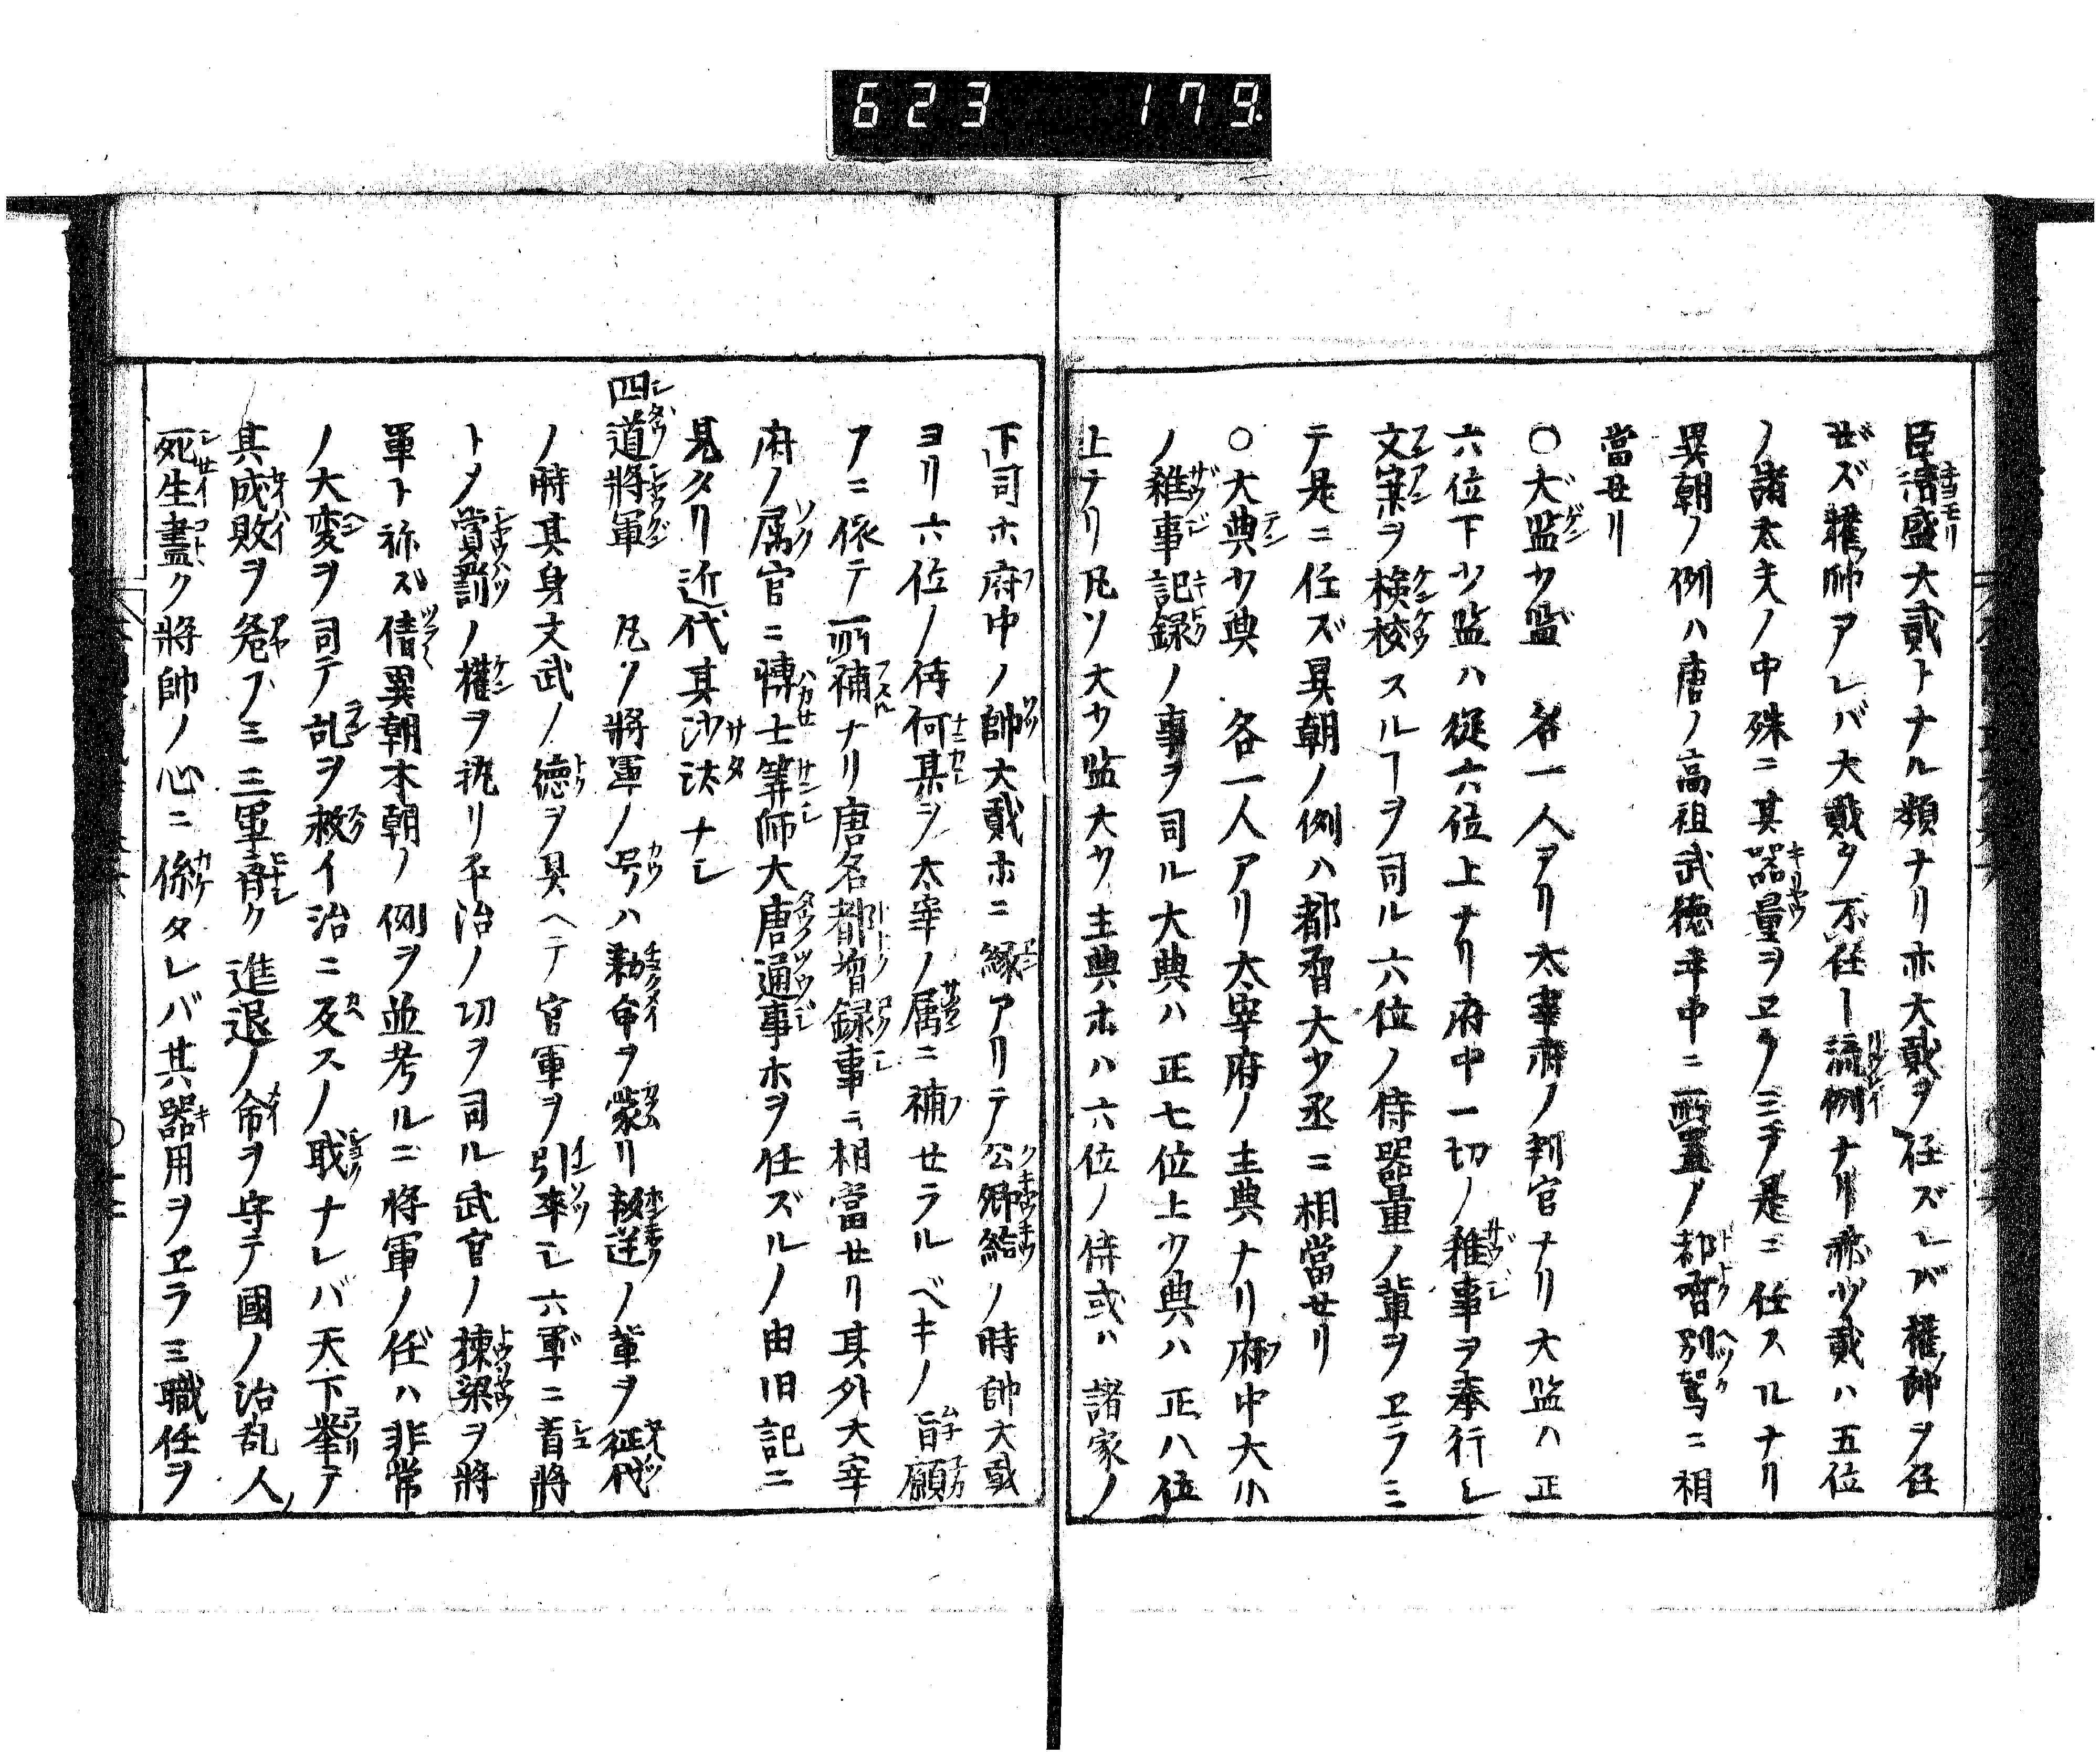 623 179.
臣清盛大貳トナル類ナリホ大貳ヲ任ズレバ權帥ヲ任
ゼズ權帥アレバ大貳ヲ不任ー流例ナリ亦少貳ハ五位
ノ諸太夫ノ中殊ニ其器量ヲヱラミテ是ニ任スルナリ
異朝ノ例ハ唐ノ高祖武徳年中ニ所置ノ都督別駕ニ相
當せリ
○大監少監 各一人アリ太宰府ノ判官ナリ大監ハ正
六位下少監ハ從六位上ナリ府中一切ノ雜事ヲ奉行シ
文案ヲ検校スルヿヲ司ル六位ノ侍器量ノ輩ヲヱラミ
テ是ニ任ズ異朝ノ例ハ都督大少丞ニ相當せリ
○大典少典 各一人アリ太宰府ノ主典ナリ府中大小
ノ雜事記録ノ事ヲ司ル大典ハ正七位上少典ハ正八位
上ナリ凡ソ大少監大少主典ホハ六位ノ侍或ハ諸家ノ
下司ホ府中ノ帥大貳ホニ縁アリテ公卿給ノ時帥大貳
ヨリ六位ノ侍何某ヲ太宰ノ属ニ補せラルベキノ旨願
アニ依テ所補ナリ唐名都督録事ニ相當せリ其外大宰
府ノ属官ニ博士筭師大唐通事ホヲ任ズルノ由旧記ニ
見タリ近代其沙汰ナシ
四道將軍 凡ソ將軍ノ号ハ勅命ヲ蒙リ叛逆ノ輩ヲ征伐
ノ時其身文武ノ徳ヲ具ヘテ官軍ヲ引率シ六軍ニ首將
トメ賞罰ノ權ヲ執リ平治ノ切ヲ司ル武官ノ揀梁ヲ將
軍ト称ズ倩異朝本朝ノ例ヲ並考ルニ將軍ノ任ハ非常
ノ大変ヲ司テ乱ヲ救イ治ニ反スノ職ナレバ天下挙テ
其成敗ヲ危ブミ三軍齊ク進退ノ命ヲ守テ國ノ治乱人
死生盡ク將帥ノ心ニ係タレバ其器用ヲヱラミ職任ヲ